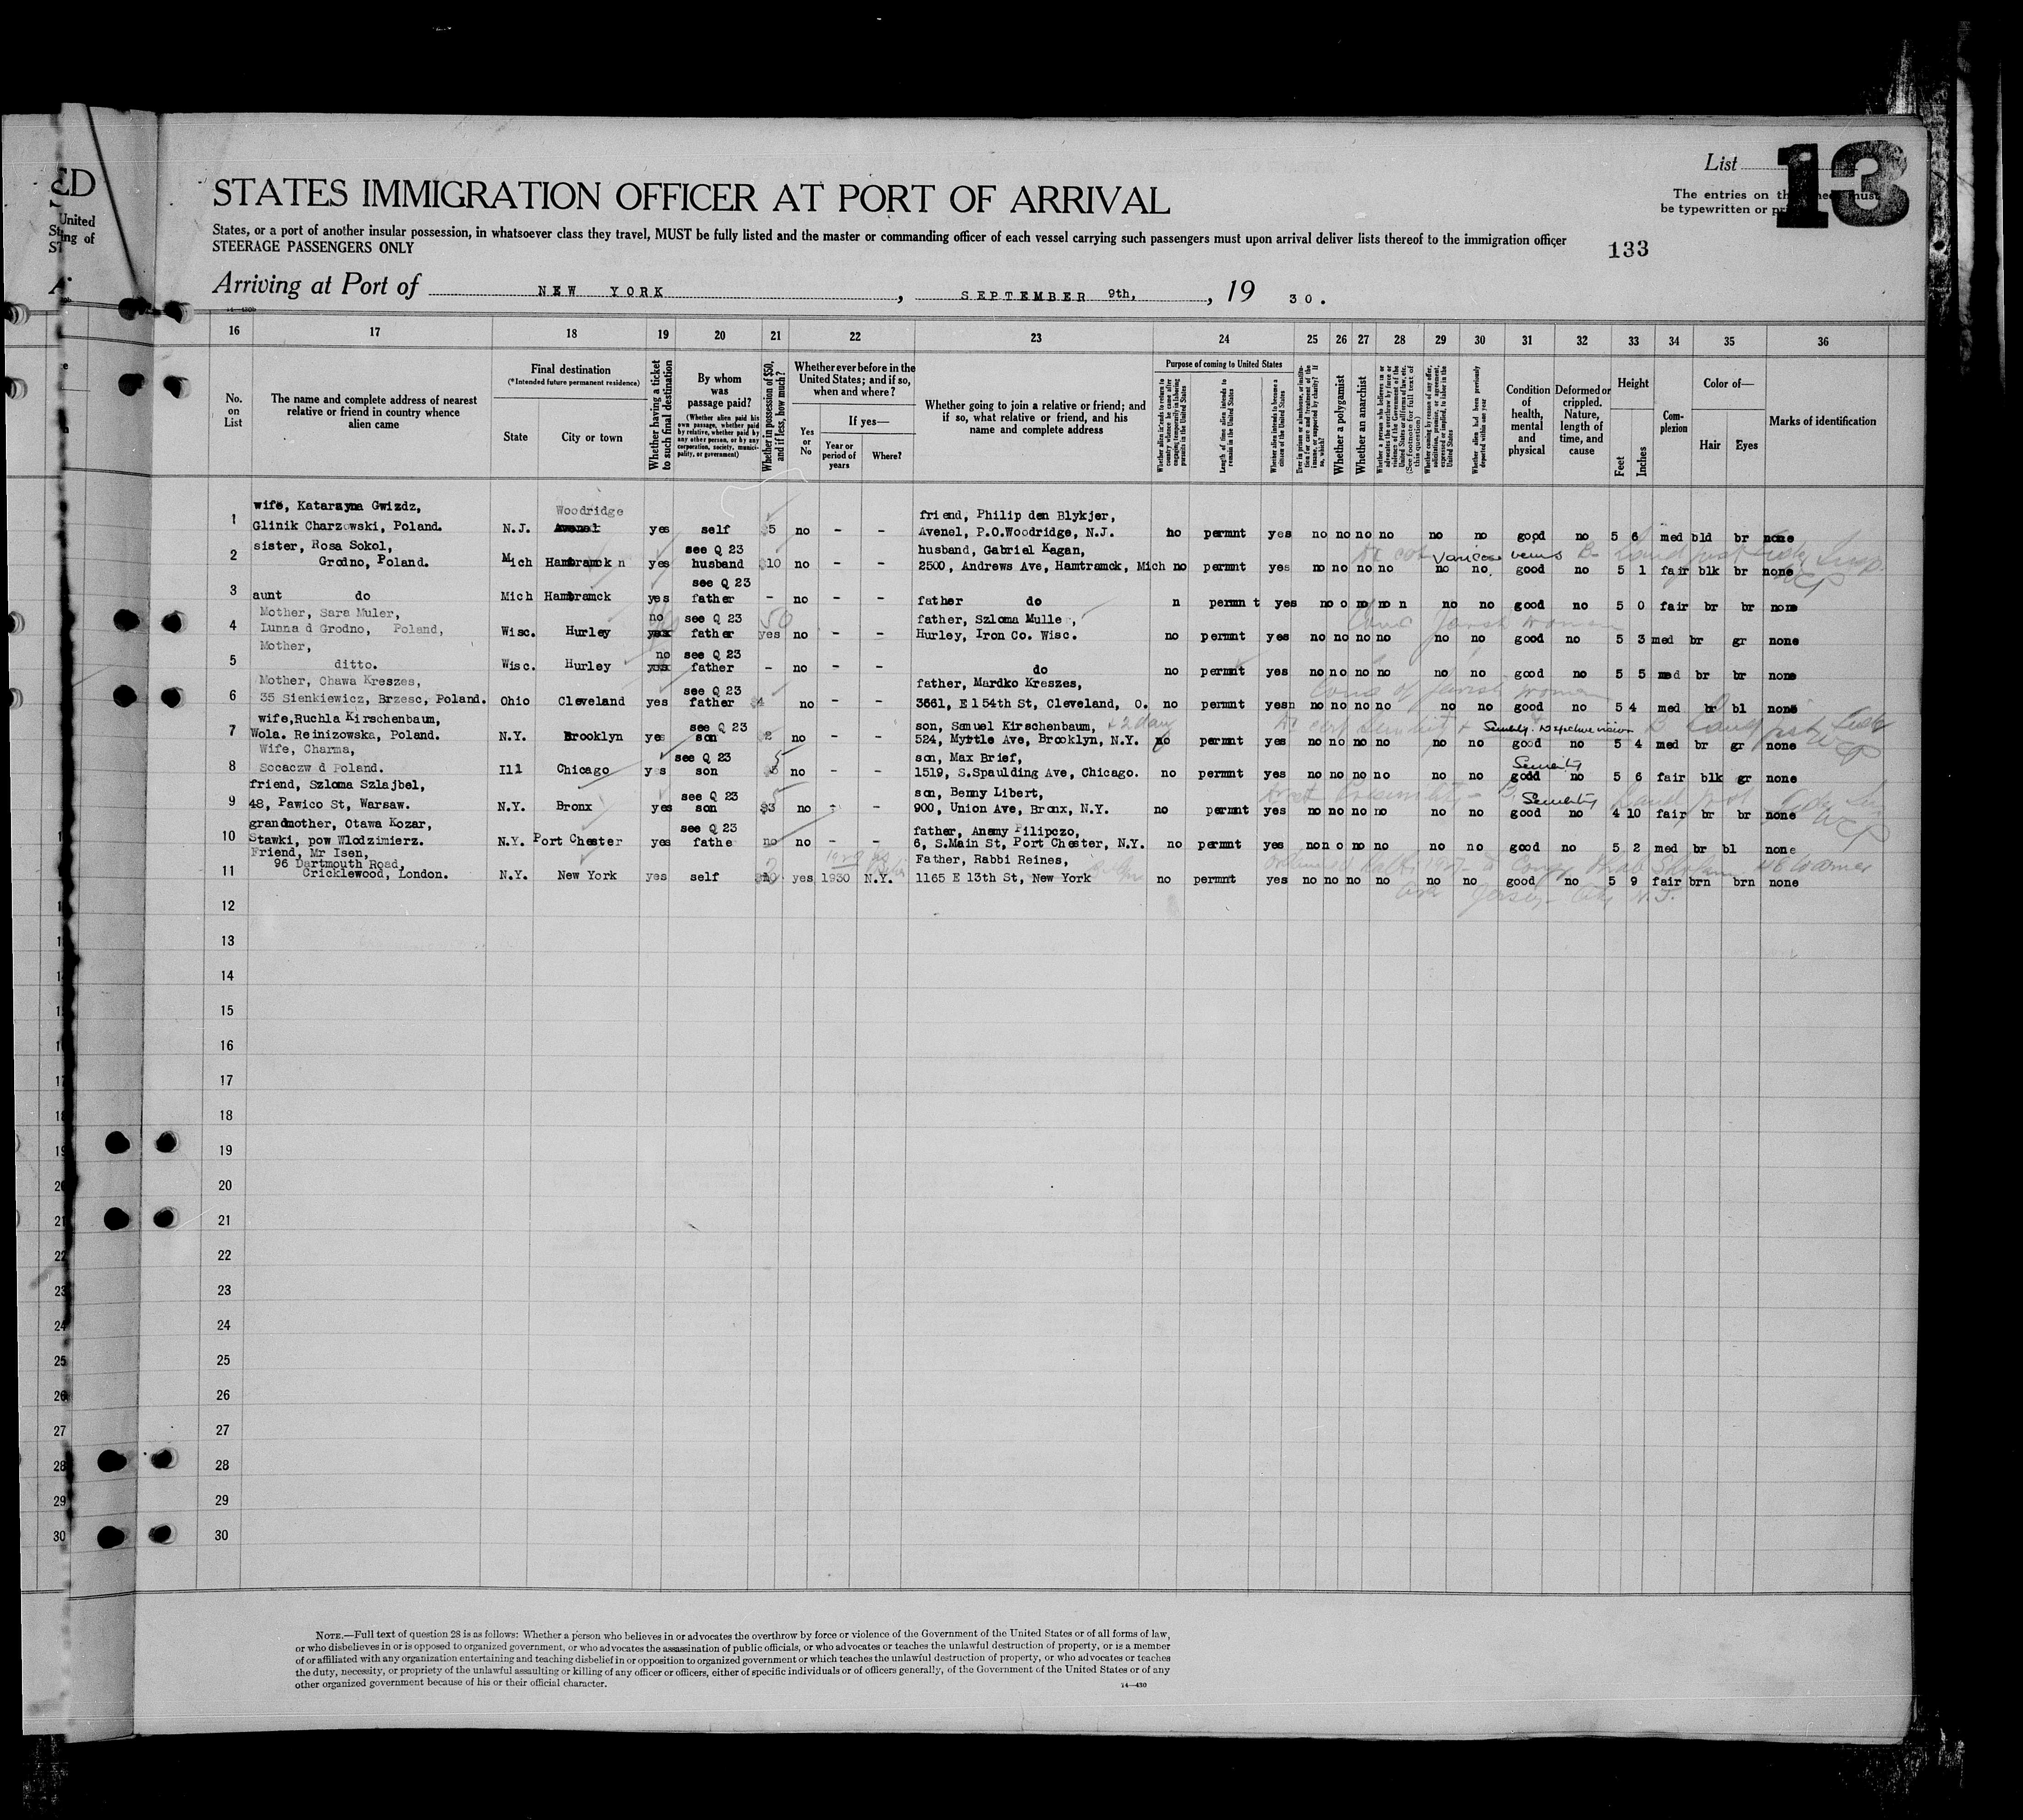 List
13
The entries on this sheet must
be typewritten or pr
ED
United
ing of
STATES IMMIGRATION OFFICER AT PORT OF ARRIVAL
States, or a port of another insular possession, in whatsoever class they travel, MUST be fully listed and the master or commanding officer of each vessel carrying such passengers must upon arrival deliver lists thereof to the immigration officer
STEERAGE PASSENGERS ONLY
133
Arriving at Port of NEW YORK, SEPTEMBER 9th, 19 30.
16 17 18 19 20 21 22 23 24 25 26 27 28 29 30 31 32 33 34 35 36
No. on List
The name and complete address of nearest relative or friend in country whence alien came
Final destination
(*Intended future permanent residence)
State
City or town
Whether having a ticket to such final destination
By whom was passage paid?
(Whether alien paid his own passage, whether paid by relative, whether paid by any other person, or by any corporation, society, municipality, or government)
Whether in possession of $50, and if less, how much?
Whether ever before in the United States; and if so, when and where?
Yes or No
If yes—
Year or period of years
Where?
Whether going to join a relative or friend; and if so, what relative or friend, and his name and complete address
Purpose of coming to United States
Length of time alien intends to remain in the United States
Whether alien intends to become a citizen of the United States
Whether a polygamist
Whether an anarchist
Condition of health, mental and physical
Deformed or crippled. Nature, length of time, and cause
Height
Feet
Inches
Complexion
Color of—
Hair
Eyes
Marks of identification
wife, Katarzyna Gwizdz, Woodridge friend, Philip den Blykjer,
1 Glinik Charzowski, Poland. N.J. Avenel yes self $5 no - - Avenel, P.O.Woodridge, N.J. no permnt yes no no no no no no good no 5 6 med bld br none
sister, Rosa Sokol, see Q 23 husband, Gabriel Kagan, Varicose veins
2 Grodno, Poland. Mich Hamtramck n yes husband $10 no - - 2500, Andrews Ave, Hamtramck, Mich no permnt yes no no no no no no good no 5 1 fair blk br none
see Q 23
3 aunt do Mich Hamtramck yes father - no - - father do n permn t yes no o no no n no no good no 5 0 fair br br none
Mother, Sara Muler, no see Q 23 50 father, Szloma Mulle ,
4 Lunna d Grodno, Poland, Wisc. Hurley yes father yes no - - Hurley, Iron Co. Wisc. no permnt yes no no no no no no good no 5 3 med br gr none
Mother, no see Q 23
5 ditto. Wisc. Hurley yes father - no - - do no permnt yes no no no no no no good no 5 5 med br br none
Mother, Chawa Kreszes, see Q 23 father, Mardko Kreszes,
6 35 Sienkiewicz, Brzesc, Poland. Ohio Cleveland yes father $4 no - - 3661, E 154th St, Cleveland, O. no permnt yesn no no no no no no good no 5 4 med br bl none
wife,Ruchla Kirschenbaum, see Q 23 son, Samuel Kirschenbaum, Senility. Defective vision
7 Wola. Reinizowska, Poland. N.Y. Brooklyn yes son $2 no - - 524, Myrtle Ave, Brooklyn, N.Y. no permnt yes no no no no no no good no 5 4 med br gr none
Wife, Charma, see Q 23 5 son, Max Brief, Senility
8 Socaczw d Poland. Ill Chicago y s son no - - 1519, S.Spaulding Ave, Chicago. no permnt yes no no no no no no good no 5 6 fair blk gr none
friend, Szloma Szlajbel, see Q 23 5 son, Benny Libert, Senility
9 48, Pawico St, Warsaw. N.Y. Bronx yes son $3 no - - 900, Union Ave, Bronx, N.Y. no permnt yes no no no no no no good no 4 10 fair br br none
grandmother, Otawa Kozar, see Q 23 father, Anamy Filipczo,
10 Stawki, pow Wlodzimierz. N.Y. Port Chester yes fathe no no - - 6, S.Main St, Port Chester, N.Y. no permnt yes no n o no no no no good no 5 2 med br bl none
Friend, Mr Isen, Father, Rabbi Reines,
96 Dartmouth Road,
11 Cricklewood, London. N.Y. New York yes self yes 1930 N.Y. 1165 E 13th St, New York no permnt yes no no no no no no good no 5 9 fair brn brn none
Jersey City N.J.
12
13
14
15
16
17
18
19
20
21
22
23
24
25
26
27
28
29
30
NOTE.—Full text of question 28 is as follows: Whether a person who believes in or advocates the overthrow by force or violence of the Government of the United States or of all forms of law,
or who disbelieves in or is opposed to organized government, or who advocates the assassination of public officials, or who advocates or teaches the unlawful destruction of property, or is a member
of or affiliated with any organization entertaining and teaching disbelief in or opposition to organized government or which teaches the unlawful destruction of property, or who advocates or teaches
the duty, necessity, or propriety of the unlawful assaulting or killing of any officer or officers, either of specific individuals or of officers generally, of the Government of the United States or of any
other organized government because of his or their official character.
14—430